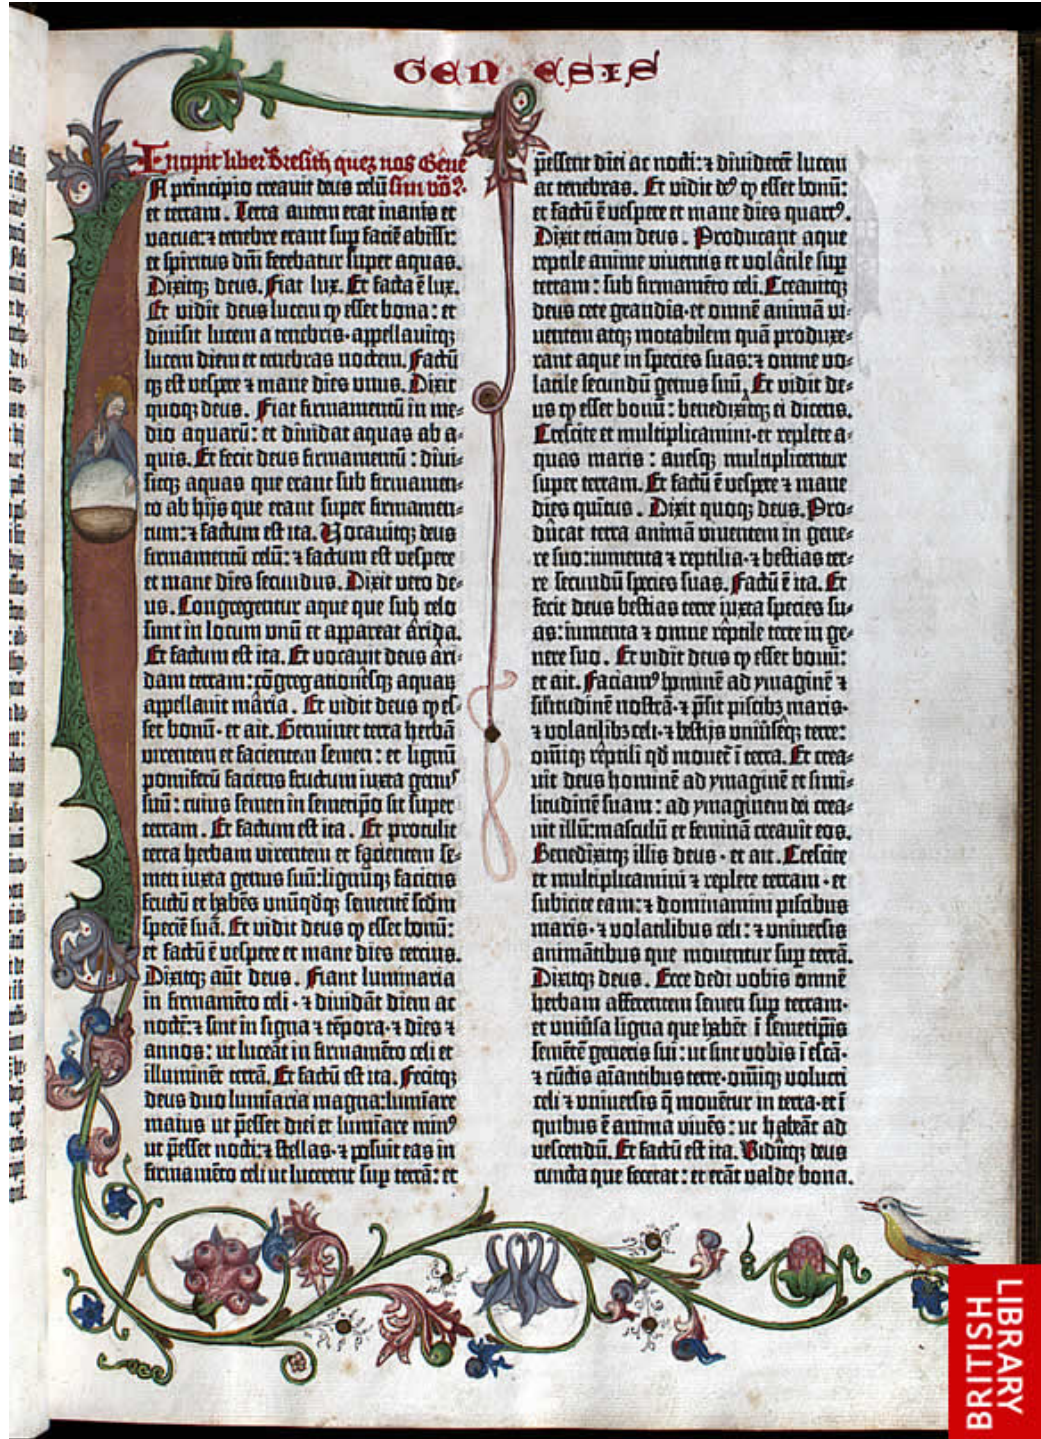 GENESIS
Incipit liber Bresith quez nos Gene
In principio creauit deus celū sim vōz.
et terram. Terra autem erat inanis et
vacua: ⁊ tenebre erant sup facie abissi:
et spiritus dn̄i ferebatur super aquas.
Dixitq; deus. Fiat lux. Et facta ē lux.
Et vidit deus lucem ꝙ esset bona: et
diuisit lucem a tenebris · appellauitq;
lucem diem et tenebras noctem. Factū
q; est vespere ⁊ mane dies vnus. Dixit
quoq; deus. Fiat firmamentū in me-
dio aquarū: et diuidat aquas ab a-
quis. Et fecit deus firmamentū: diui-
sitq; aquas que erant sub firmamen-
to ab hijs que erant super firmamen-
tum: ⁊ factum est ita. Vocauitq; deus
firmamentū celū: ⁊ factum est vespere
et mane dies secundus. Dixit vero de-
us. Congregentur aque que sub celo
sunt in locum vnū et appareat arida.
Et factum est ita. Et vocauit deus ari-
dam terram: cōgregationesq; aquaȝ
appellauit maria. Et vidit deus ꝙ es-
set bonū · et ait. Germinet terra herbā
virentem et facientem semen: et lignū
pomiferū faciens fructum iuxta genus
suū: cuius semen in semetipō sit super
terram. Et factum est ita. Et protulit
terra herbam virentem et facientem se-
men iuxta genus suū: lignūq; faciens
fructū et habēs vnūqdq; sementē scdm
speciē suā. Et vidit deus ꝙ esset bonū:
et factū ē vespere et mane dies tercius.
Dixitq; aūt deus. Fiant luminaria
in firmamēto celi · ⁊ diuidāt diem ac
noctē: ⁊ sint in signa ⁊ tēpora · ⁊ dies ⁊
annos: ut luceāt in firmamēto celi et
illuminēt terrā. Et factū est ita. Fecitq;
deus duo luminaria magna: luminare
maius ut p̄esset diei et luminare minꝰ
ut p̄esset nocti: ⁊ stellas · ⁊ posuit eas in
firmamēto celi ut lucerent sup terrā: et
p̄essent diei ac nocti: ⁊ diuiderēt lucem
ac tenebras. Et vidit deꝰ ꝙ esset bonū:
et factū ē vespere et mane dies quartꝰ.
Dixit etiam deus. Producant aque
reptile anime viuentis et volatile sup
terram: sub firmamēto celi. Creauitq;
deus cete grandia · et omnē animā vi-
uentem atq; motabilem quā produxe-
rant aque in species suas: ⁊ omne vo-
latile secundū genus suū. Et vidit de-
us ꝙ esset bonū: benedixitq; ei dicens.
Crescite et multiplicamini · et replete a-
quas maris: auesq; multiplicentur
super terram. Et factū ē vespere ⁊ mane
dies quītus. Dixit quoq; deus. Pro-
ducat terra animā viuentem in gene-
re suo: iumenta ⁊ reptilia · ⁊ bestias ter-
re secundū species suas. Factū ē ita. Et
fecit deus bestias terre iuxta species su-
as: iumenta ⁊ omne reptile terre in ge-
nere suo. Et vidit deus ꝙ esset bonū:
et ait. Faciamꝰ hominē ad ymaginē ⁊
similitudinē nostrā · ⁊ p̄sit piscibȝ maris ·
⁊ volatilibȝ celi · ⁊ bestijs vniūseq; terre:
omīq; reptili qd mouet ī terra. Et crea-
uit deus hominē ad ymaginē et simi-
litudinē suam: ad ymaginem dei crea-
uit illū: masculū et feminā creauit eos.
Benedixitq; illis deus · et ait. Crescite
et multiplicamini ⁊ replete terram · et
subicite eam: ⁊ dominamini piscibus
maris · ⁊ volatilibus celi: ⁊ vniuersis
animātibus que mouentur sup terrā.
Dixitq; deus. Ecce dedi vobis omnē
herbam afferentem semen sup terram ·
et vniūsa ligna que habēt ī semetipīs
semētē generis sui: ut sint vobis ī escā ·
⁊ cūctis aīantibus terre · omīq; volucri
celi ⁊ vniuersis q̄ mouētur in terra · et ī
quibus ē anima viuēs: ut habeāt ad
vescendū. Et factū est ita. Viditq; deus
cuncta que fecerat: et erāt valde bona.
BRITISH
LIBRARY